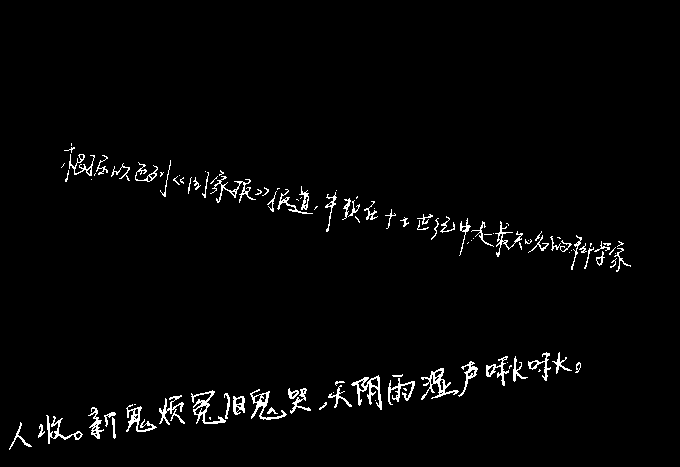 根据以色列《国家报》报道,牛顿在十七世纪中是最知名的科学家
人收。新鬼烦冤旧鬼哭,天阴雨湿声啾啾。